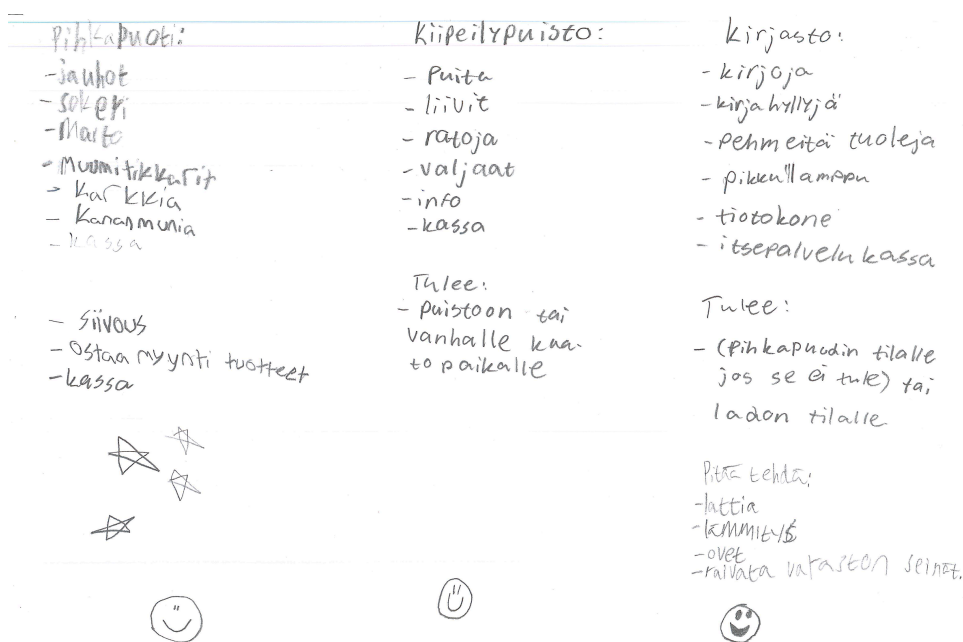 Pihkapuoti:
-jauhot
-sokeri
-Maito
-Muumitikkarit
-karkkia
- Kananmunia
-kassa
- Siivous
-Ostaa myynti tuotteet
-kassa
Kiipeilypuisto:
- Puita
- liivit
- ratoja
-valjaat
-info
-kassa
Tulee:
- puistoon tai
vanhalle kaa-
to paikalle
Kirjasto:
- kirjoja
-kirjahyllyjä
-pehmeitä tuoleja
- pikku lamppu
- tiotokone
- itsepalvelu kassa
Tulee:
- (pihkapuodin tilalle
jos se ei tule) tai
ladon tilalle
Pitää tehdä:
-lattia
-lämmitys
-ovet
-raivata varaston seinät.